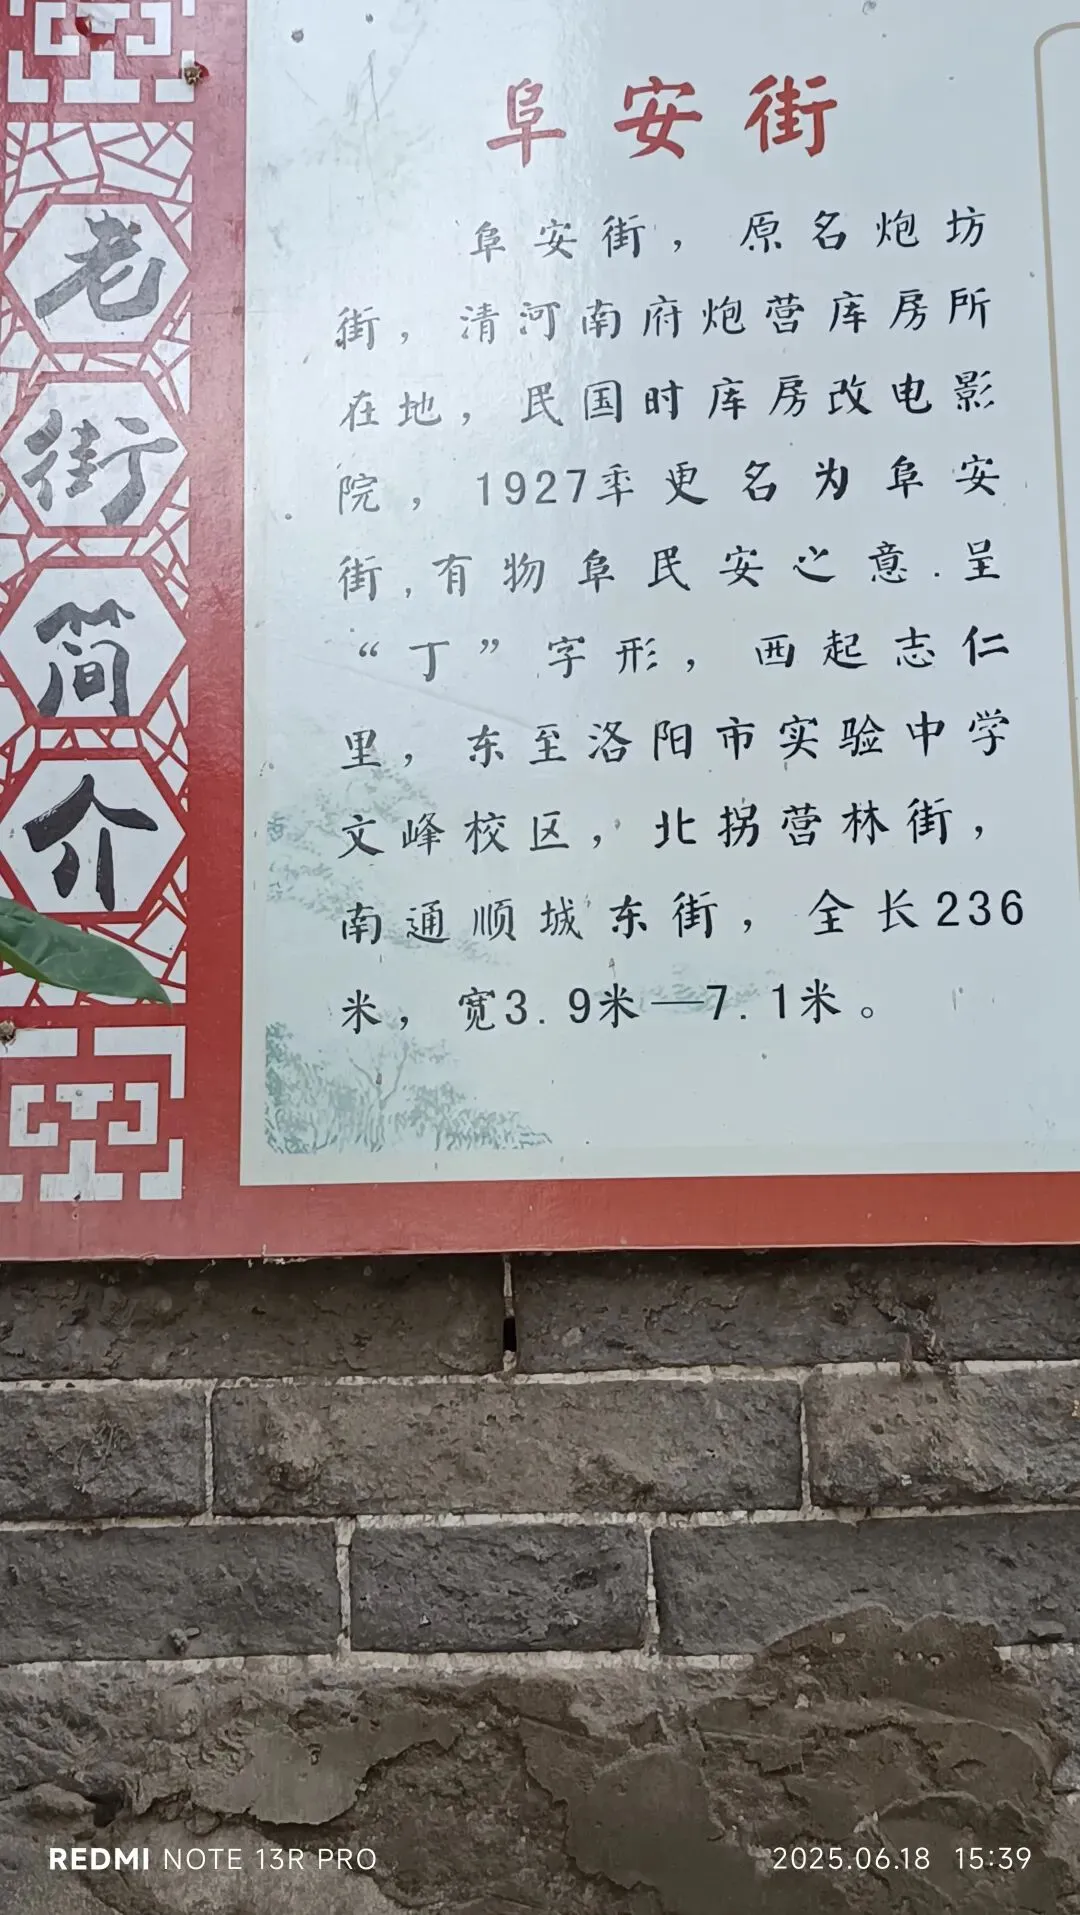 老街简介
阜安街
阜安街，原名炮坊
街，清河南府炮营库房所
在地，民国时库房改电影
院，1927年更名为阜安
街,有物阜民安之意.呈
“丁”字形，西起志仁
里，东至洛阳市实验中学
文峰校区，北拐营林街，
南通顺城东街，全长236
米，宽3.9米—7.1米。
REDMI NOTE 13R PRO
2025.06.18 15:39